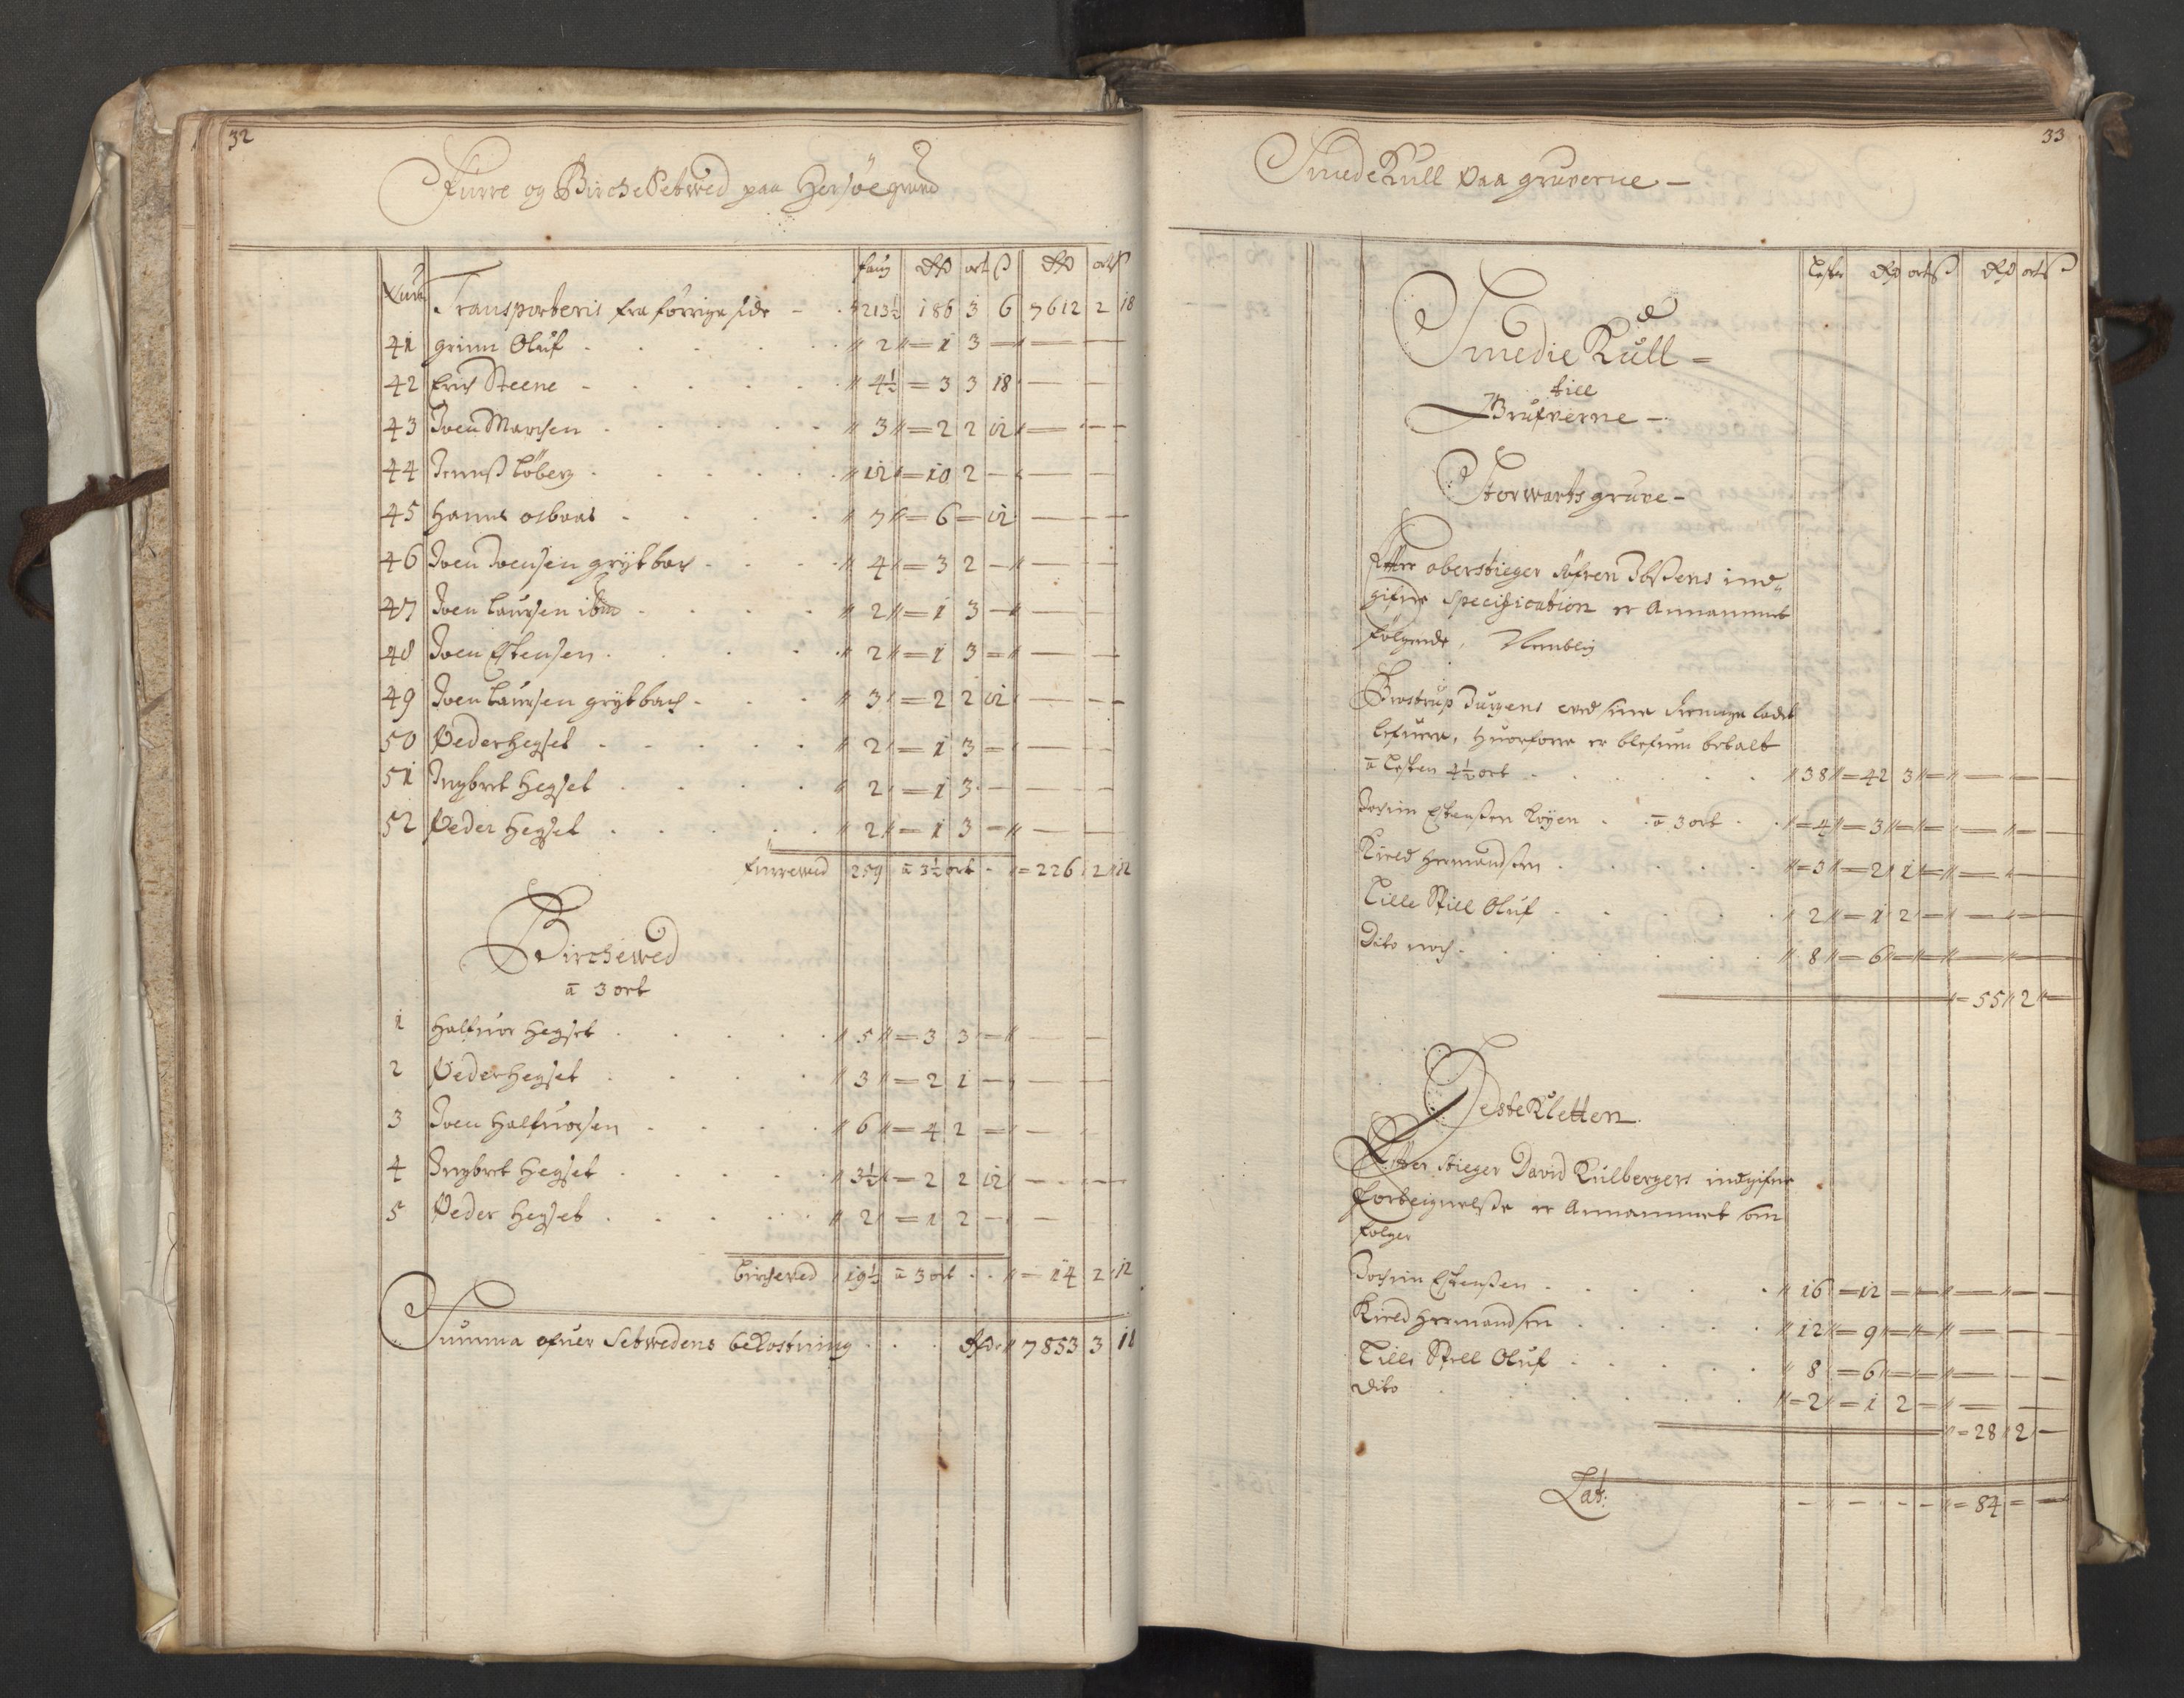 32
Furre og Birche Setwed paa Hersöe grund
Num faug Rdr ort ß Rdr ort ß
Transporteris fra forrige side - 213½ 186 3 6 7612 2 18
41 grim Oluf 2 1 3
42 Erich Steene 4½ 3 3 18
43 Joen Marchsen 3 2 2 12
44 Jennß Löberg 12 10 2
45 Hanns 7 6 12
46 Joen Joensen grytbach 4 3 2
47 Joen Laursen ibm 2 1 3
48 Joen Estensen 2 1 3
49 Joen Laursen grytbach 3 2 2 12
50 Peder hegset 2 1 3
51 Ingbret Hegset 2 1 3
52 Peder hegset 2 1 3
Furrewed 259 a 3½ ort 226 2 12
Birchewed
a 3 ort
1 Halfuor Hegset 5 3 3
2 Peder hegset 3 2 1
3 Joen Halfuorsen 6 4 2
4 Ingbret Hegset 3½ 2 2 12
5 Peder Hegset 2 1 2
Birchewed 19½ a 3 ort 14 2 12
Summa ofuer Setwedens bekostning Rdr 7853 3 18
33
Smede Kull paa gruverne -
Lester Rdr ort ß Rdr ort ß
Smedie Kull =
till
Grufverne -
Storwartz gruve -
Efter oberstieger Söfren Ibßens ind„
gifne Specification er Annammet
følgende, Nemblig
Brostrup Jürgens med sine ladet
lefuere, Huorfore er blefuen betalt
a Lesten 4½ ort 38 42 3
Jochim Estenßen Röyen a 3 ort 4 3
Kield Hermandsen 3 2 1
Lille Skiell Oluf 2 1 2
Dito noch 8 6
55 2
Hestekletten
Efter stieger David Kulbergers indgifne
fortegnelße er Annammet som
følger
Jochim Estenßen 16 12
Kield Hermandsen 12 9
Lille Skiell Oluf 8 6
Dito 2 1 2
28 2
Lat: 84